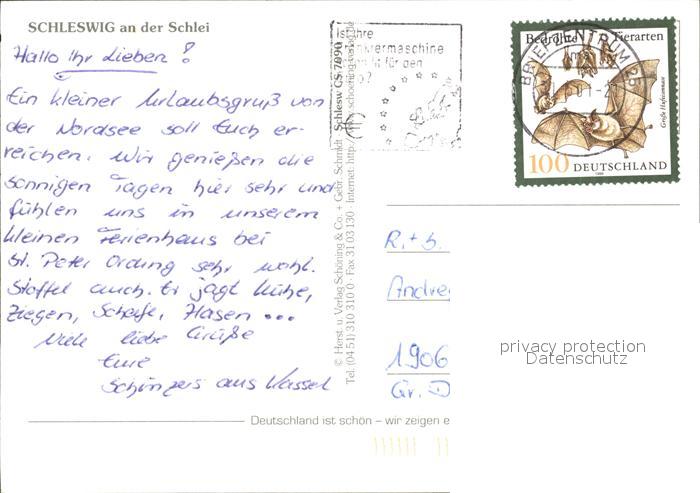 SCHLESWIG an der Schlei
Hallo Ihr Lieben!
Ein kleiner Urlaubsgruß von
der Nordsee soll Euch er-
reichen. Wir genießen die
sonnigen Tagen hier sehr und
fühlen uns in unserem
kleinen Ferienhaus bei
St. Peter Ording sehr wohl.
Stoffel auch. Er jagt Kühe,
Ziegen, Schafe, Hasen ...
Viele liebe Grüße
Eure
aus Kassel
© Herst. u. Verlag Schöning & Co. + Gebr. Schmidt
Schlesw GS 7090
Tel. (04 51) 310 310 0 · Fax 31 03 130 · Internet: http
Ist Ihre
für den
Bedrohte Tierarten
BRIEFZENTRUM
Große Hufeisennase
100 DEUTSCHLAND
R. + h.
Andre
1906
Gr. D
privacy protection
Datenschutz
Deutschland ist schön – wir zeigen e